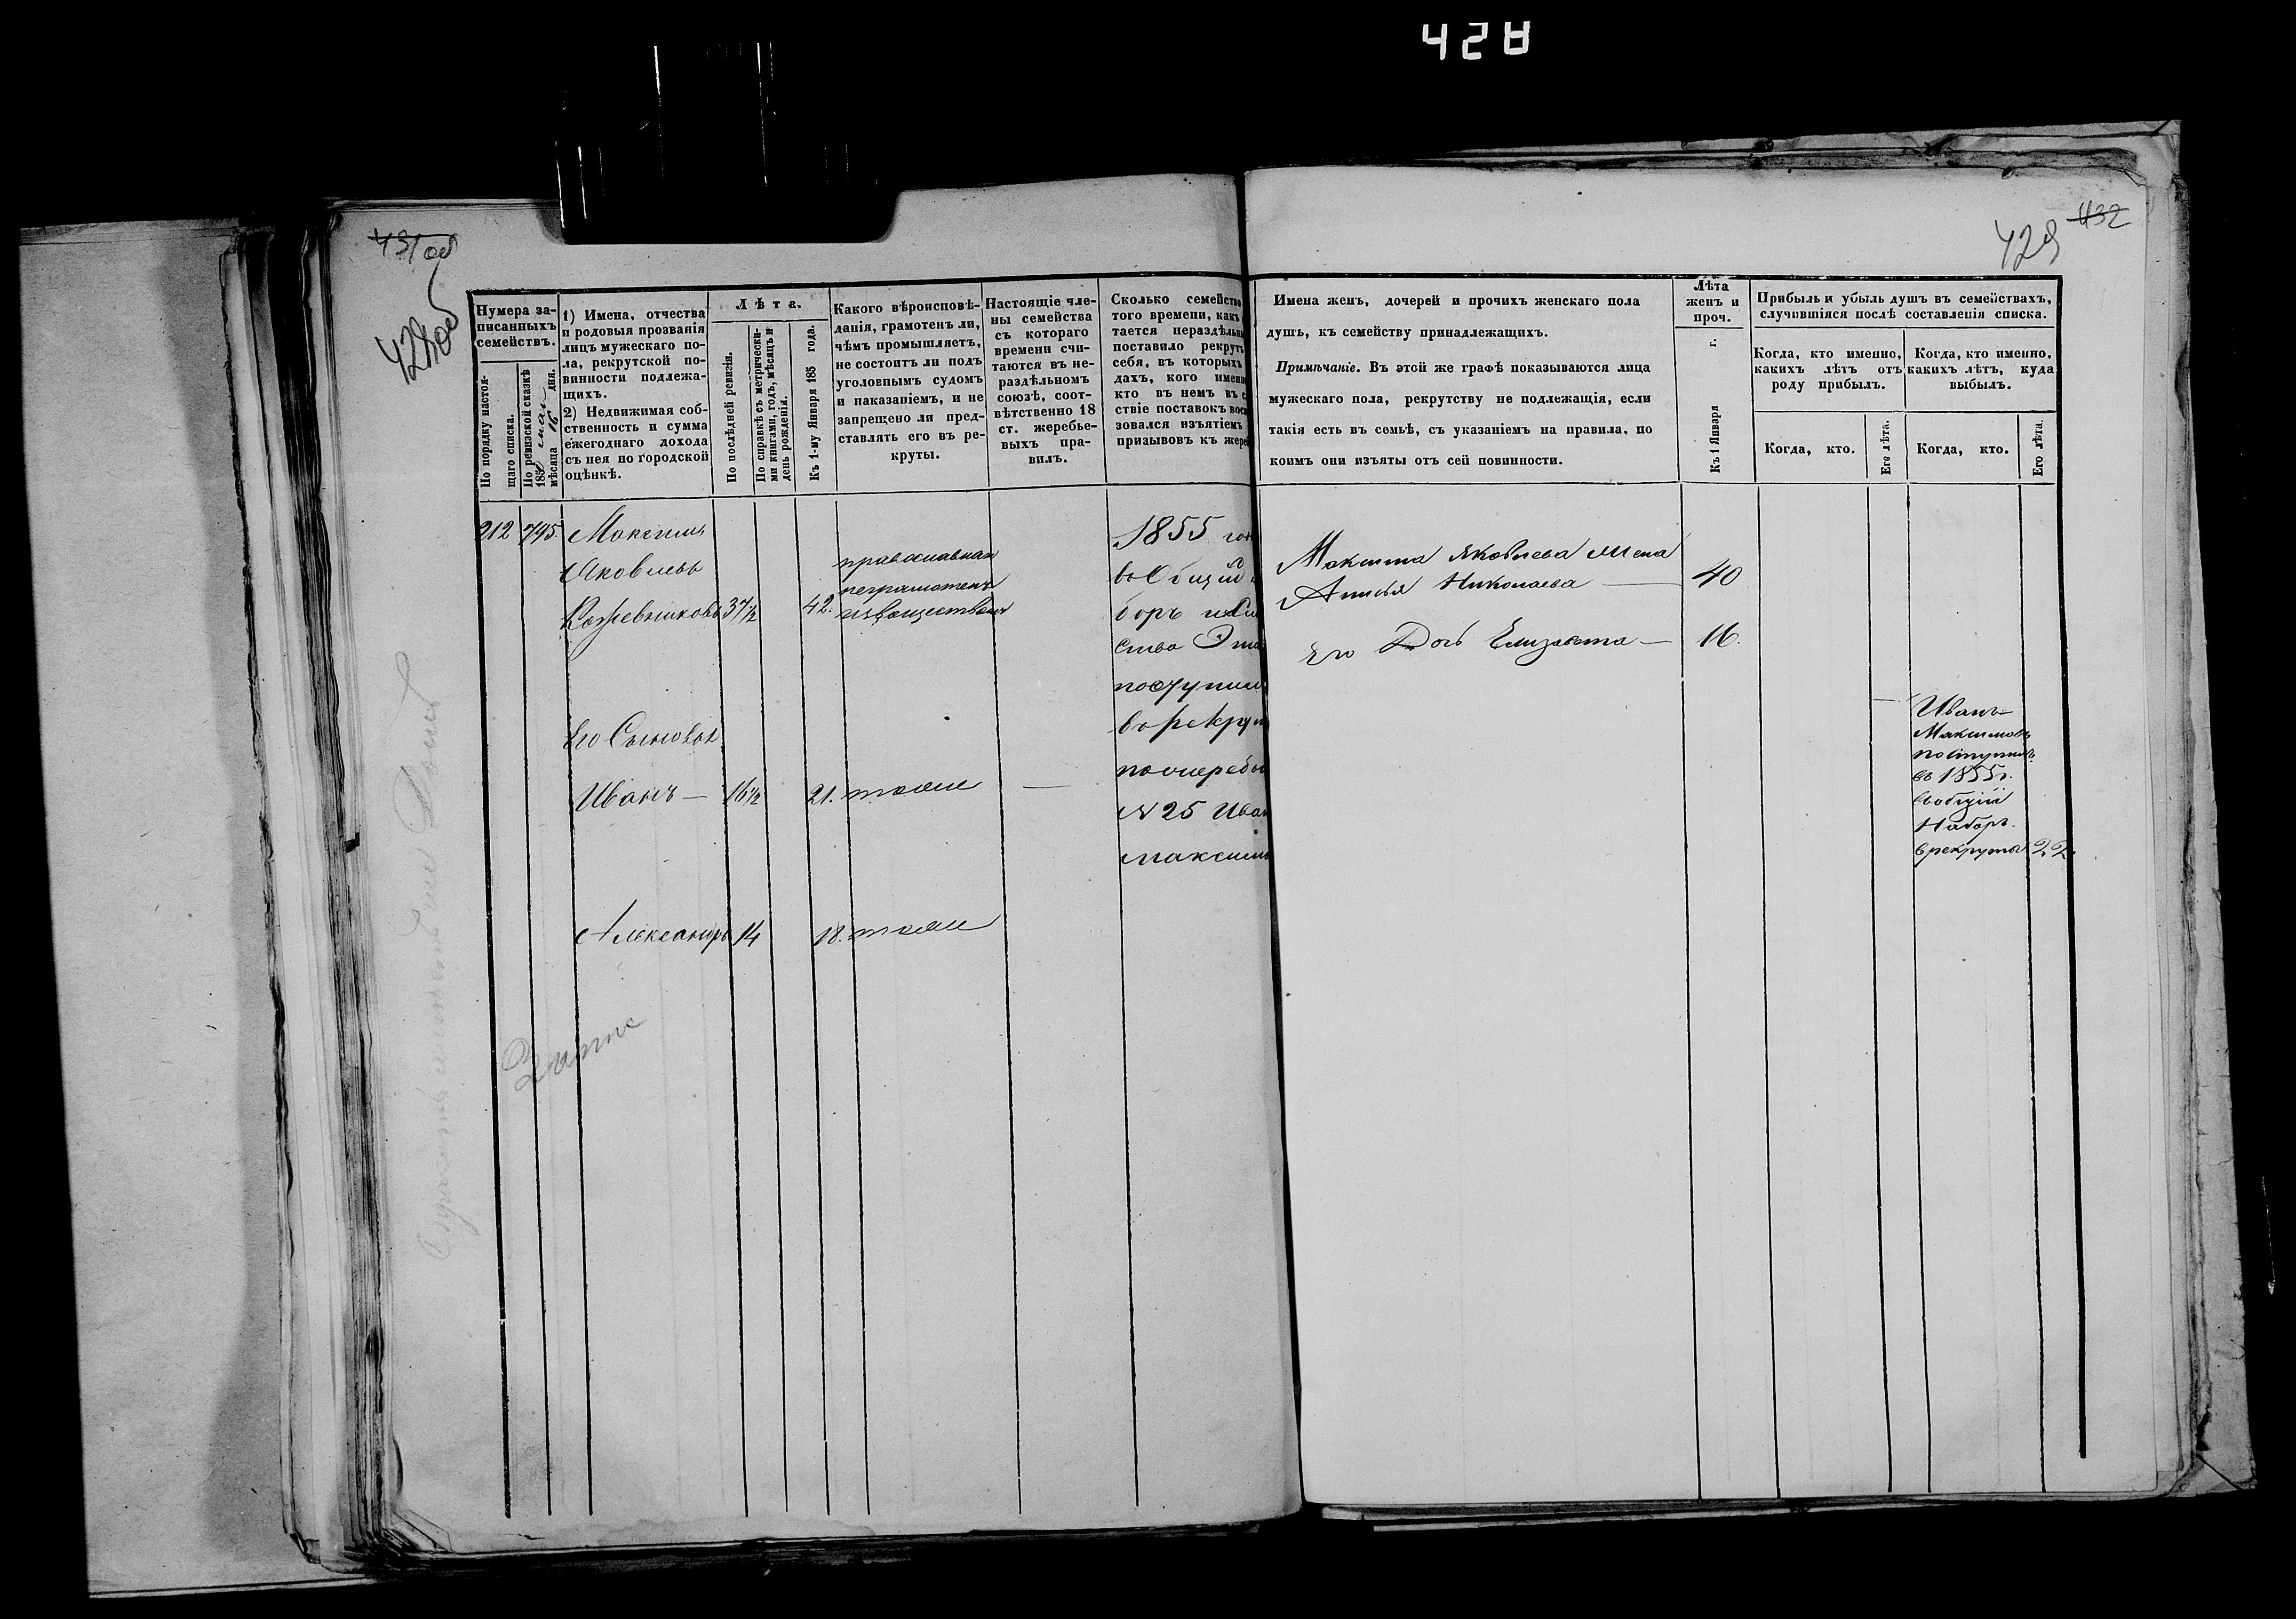 428
431 об
428 об
432
429
Нумера записанныхъ семействъ.
По порядку настоящаго списка.
По ревизской сказкѣ 1850 мая мѣсяца 16 дня.
1) Имена, отчества
и родовыя прозванія
лицъ мужескаго по-
ла, рекрутской по-
винности подлежа-
щихъ.
2) Недвижимая соб-
ственность и сумма
ежегоднаго дохода
съ нея по городской
оцѣнкѣ.
Лѣта.
По послѣдней ревизіи.
По справкѣ съ метрически-
ми книгами, годъ, мѣсяцъ и
день рожденія.
Къ 1-му Января 185 года.
Какого вѣроисповѣ-
данія, грамотенъ ли,
чѣмъ промышляетъ,
не состоитъ ли подъ
уголовнымъ судомъ
и наказаніемъ, и не
запрещено ли пред-
ставлять его въ ре-
круты.
Настоящіе чле-
ны семейства
съ котораго
времени счи-
таются въ не-
раздѣльномъ
союзѣ, соот-
вѣтственно 18
ст. жеребье-
выхъ пра-
вилъ.
Сколько семейство
того времени, какъ
тается нераздѣльн
поставило рекрутъ
себя, въ которыхъ
дахъ, кого именно
кто въ немъ въ с
ствіе поставокъ вос
зовался изъятіемъ
призывовъ къ жере
Имена женъ, дочерей и прочихъ женскаго пола
душъ, къ семейству принадлежащихъ.
Примѣчаніе. Въ этой же графѣ показываются лица
мужескаго пола, рекрутству не подлежащія, если
такія есть въ семьѣ, съ указаніемъ на правила, по
коимъ они изъяты отъ сей повинности.
Лѣта
женъ и
проч.
Къ 1 Января г.
Прибыль и убыль душъ въ семействахъ,
случившіяся послѣ составленія списка.
Когда, кто именно,
какихъ лѣтъ отъ
роду прибылъ.
Когда, кто именно,
какихъ лѣтъ, куда
выбылъ.
Когда, кто.
Его лѣта.
Когда, кто.
Его лѣта.
212 795. Максимъ
Яковлевъ
Кожевниковъ 37½ 42.
православная
неграмотенъ
извоществомъ
Его Сыновья
Иванъ — 16½ 21. тоже —
Александръ 14 18. тоже
1855 го
во Общій
боръ
ства Эта
поступил
во рекрут
по очереди
N 25 Ива
Максим
Максима Яковлева жена
Анисья Николаева — 40
Его Дочь Елизавета — 16.
Иванъ
Максимовъ
поступилъ
въ 1855 г.
вобщій
Наборъ
врекруты 22.